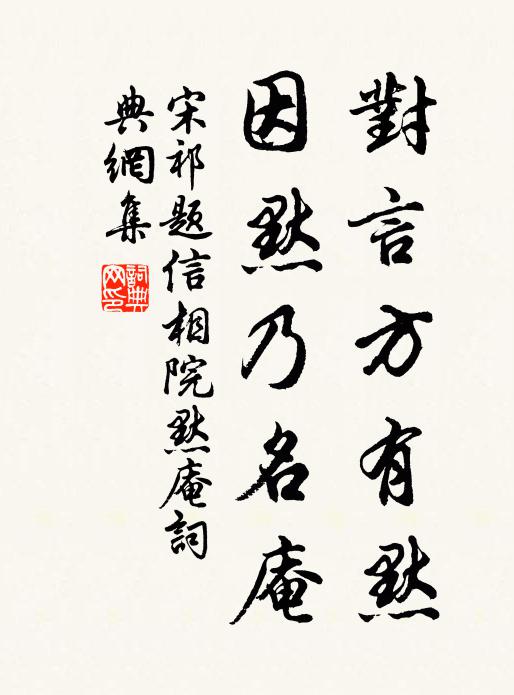 對言方有默
因默乃名庵
宋祁題信相院默庵詞
典網集
詞典網印